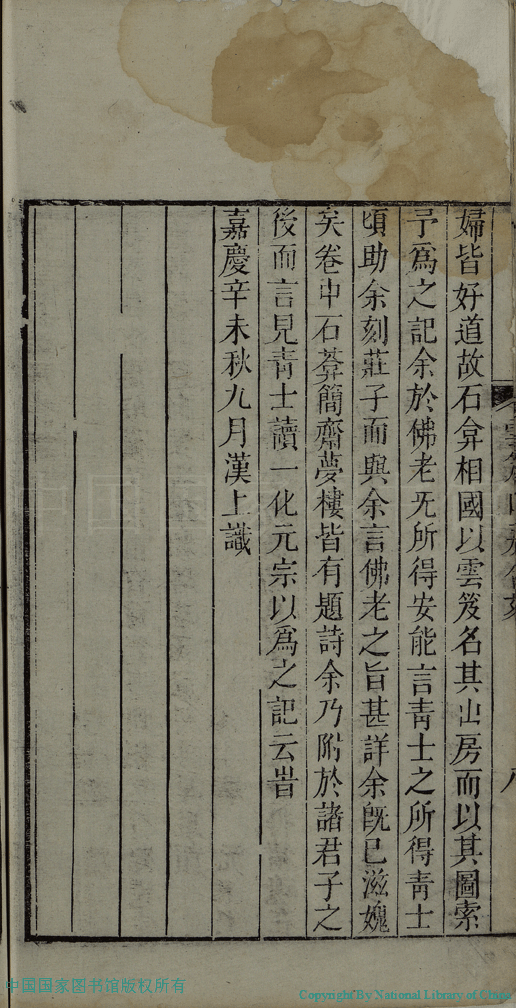 婦皆好道故石弇相國以雲笈名其山房而以其圖索
予爲之記余於佛老旡所得安能言青士之所得青士
頃助余刻莊子而與余言佛老之旨甚詳余旣已滋媿
矣卷中石弇簡齋夢樓皆有題詩余乃附於諸君子之
後而言見青士讀一化元宗以爲之記云旹
嘉慶辛未秋九月漢上識
八
中国国家图书馆版权所有
Copyright By National Library of China